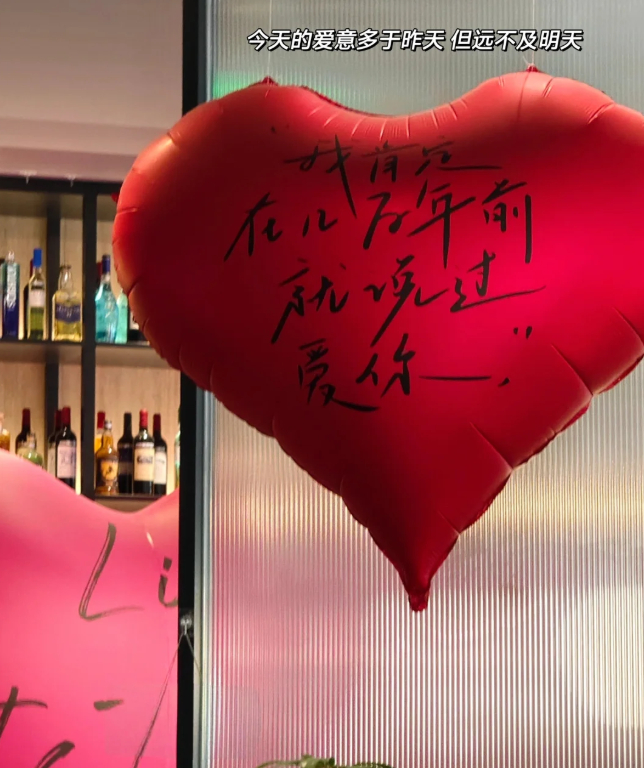 今天的爱意多于昨天 但远不及明天
“我肯定
在几百年前
就说过
爱你—.”
Li